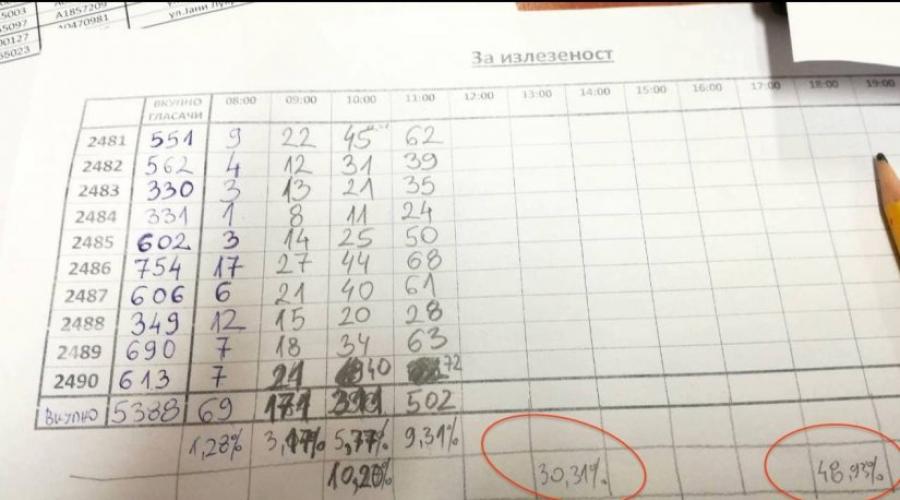 5003
5097
00127
55023
A1857209
A0470981
ул.Јани
За излезеност
ВКУПНО ГЛАСАЧИ 08:00 09:00 10:00 11:00 12:00 13:00 14:00 15:00 16:00 17:00 18:00 19:00
2481 551 9 22 45 62
2482 562 4 12 31 39
2483 330 3 13 21 35
2484 331 1 8 11 24
2485 602 3 14 25 50
2486 754 17 27 44 68
2487 606 6 21 40 61
2488 349 12 15 20 28
2489 690 7 18 34 63
2490 613 7 21 40 72
Вкупно 5388 69 171 502
1,28% 3,17% 5,77% 9,31%
10,20% 30,31% 48,93%